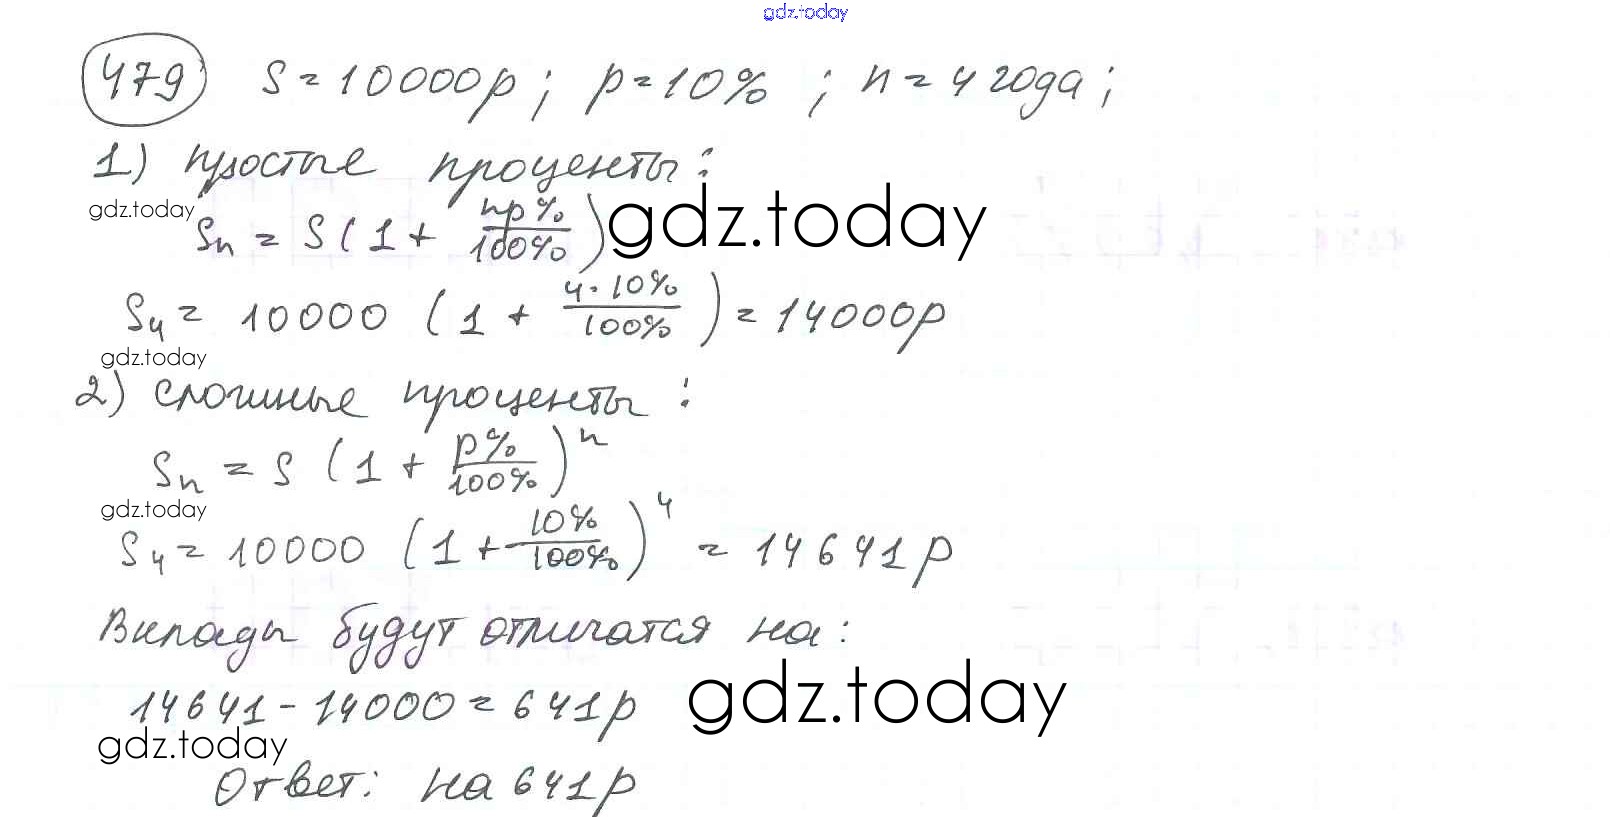 gdz.today
479 S = 10000р; p = 10% ; n = 4 года;
1) простые проценты:
gdz.today
Sn = S (1 + np%/100%) gdz.today
S4 = 10000 (1 + 4·10%/100%) = 14000р
gdz.today
2) сложные проценты:
Sn = S (1 + p%/100%)^n
gdz.today
S4 = 10000 (1 + 10%/100%)^4 = 14641р
Вклады будут отличатся на:
14641 - 14000 = 641р gdz.today
gdz.today
Ответ: на 641р